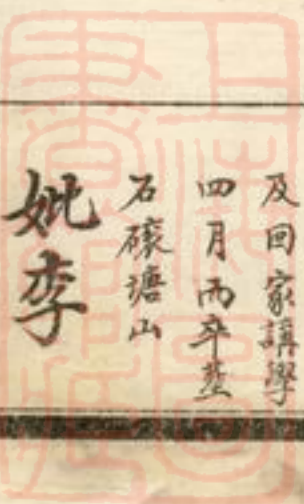 及回家講學
四月而卒塟
石塘山
妣李